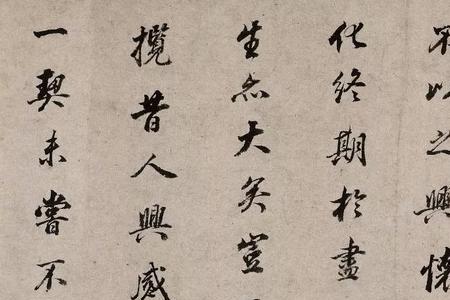 不以之興懷
化終期於盡
生亦大矣豈
攬昔人興感
一契未嘗不